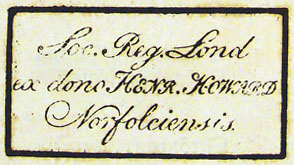 Soc. Reg. Lond
ex dono HENR. HOWARD
Norfolciensis.